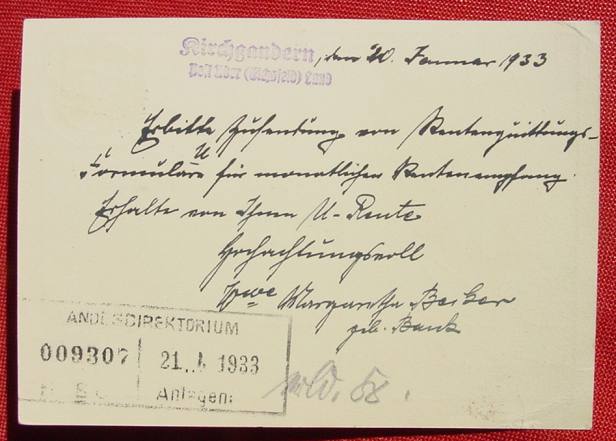 Kirchgandern, den 20. Januar 1933
Post über (Eichsfeld) Land
Erbitte Zusendung von Rentenquittungs-
Formulare für monatlichen Rentenempfang.
U
Erhalte von Ihnen U-Rente
Hochachtungsvoll
Wwe Margaretha Becker
geb. Bank
ANDESDIREKTORIUM
009307 21. 1. 1933
Anlagen: